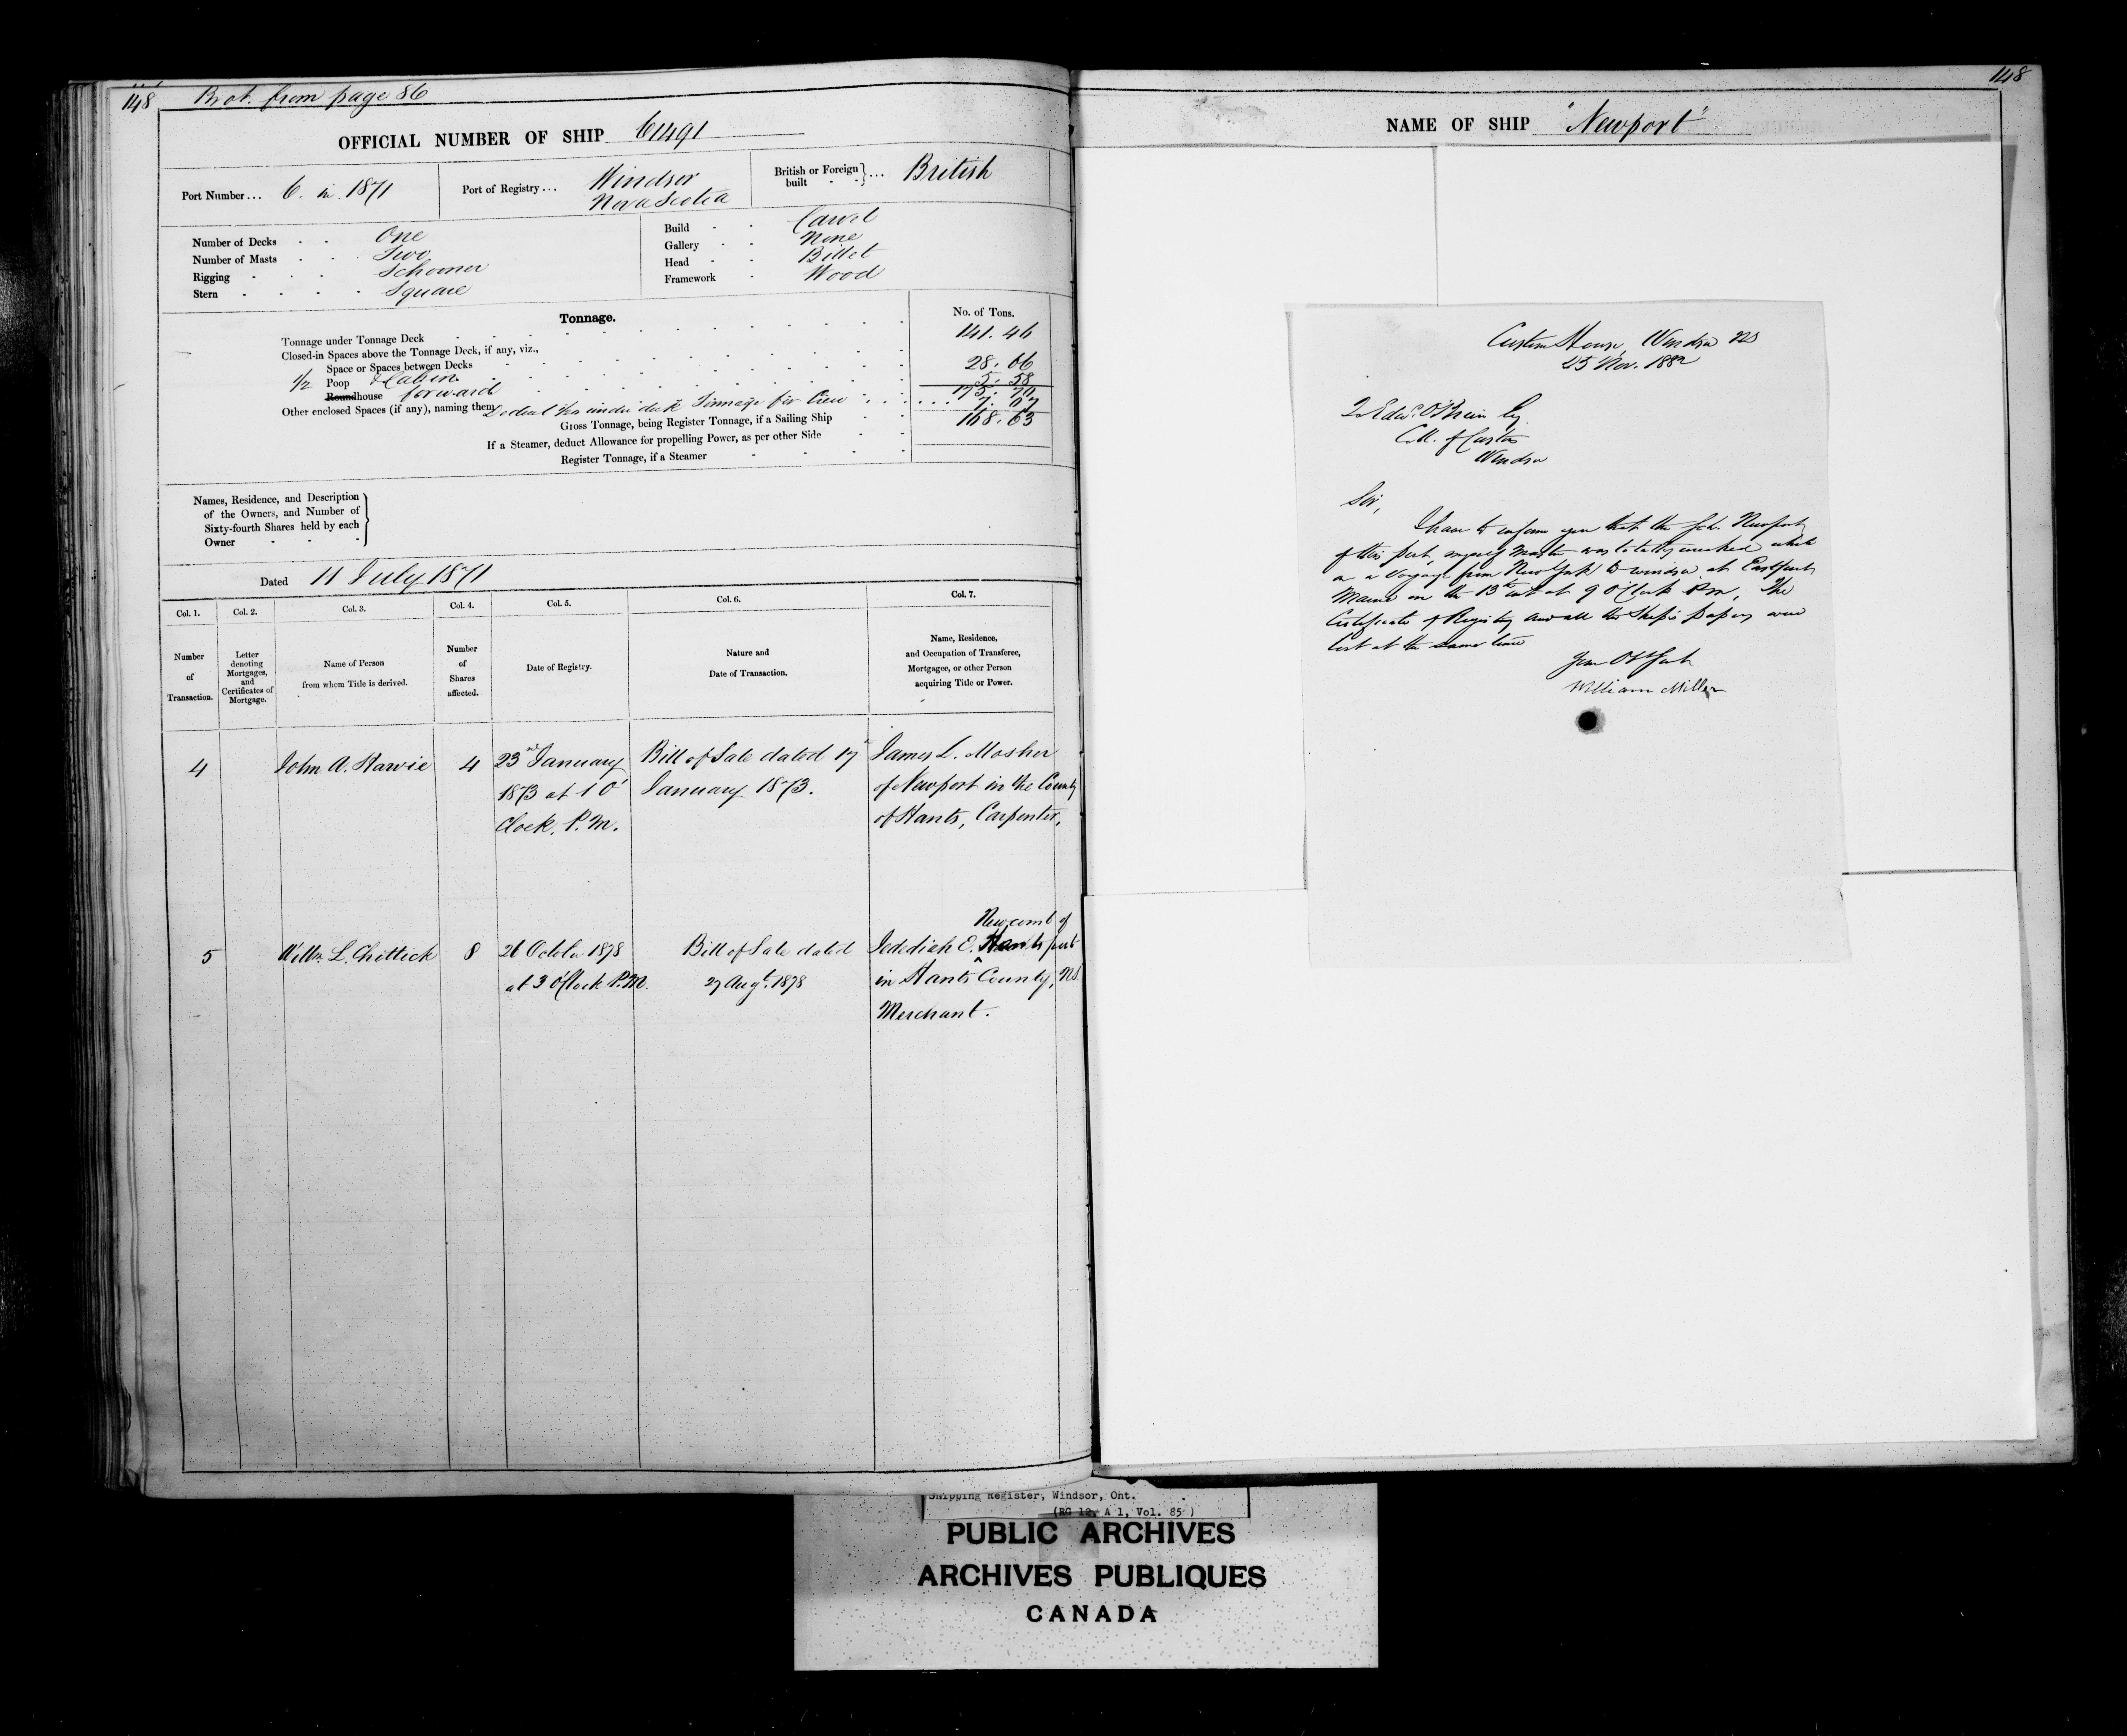 148 Brot. from page 86
OFFICIAL NUMBER OF SHIP 61491
Port Number ... 6. in. 1871
Port of Registry ... Windsor
Nova Scotia
British or Foreign built } ... British
Number of Decks One
Number of Masts Two
Rigging Schooner
Stern Square
Build Carvel
Gallery None
Head Billet
Framework Wood
Tonnage.
No. of Tons.
Tonnage under Tonnage Deck 141.46
Closed-in Spaces above the Tonnage Deck, if any, viz.,
Space or Spaces between Decks
1/2 Poop & Cabin 28.06
Roundhouse forward 5.58
Other enclosed Spaces (if any), naming them
Deduct under deck Tonnage for Crew 7.07
Gross Tonnage, being Register Tonnage, if a Sailing Ship 168.63
If a Steamer, deduct Allowance for propelling Power, as per other Side
Register Tonnage, if a Steamer
Names, Residence, and Description
of the Owners, and Number of
Sixty-fourth Shares held by each
Owner
Dated 11 July 1871
Col. 1. Col. 2. Col. 3. Col. 4. Col. 5. Col. 6. Col. 7.
Number of Transaction.
Letter denoting Mortgages, and Certificates of Mortgage.
Name of Person from whom Title is derived.
Number of Shares affected.
Date of Registry.
Nature and Date of Transaction.
Name, Residence, and Occupation of Transferee, Mortgagee, or other Person acquiring Title or Power.
4 John A. Harvie 4 23rd January Bill of Sale dated 17th James L. Mosher
1873 at 1 O' January 1873. of Newport in the County
Clock. P.M. of Hants, Carpenter,
Newcomb of
5 Willm. L. Chittick 8 26 October 1878 Bill of Sale dated Jedediah E. ^ Hantsport
at 3 O'Clock P.M. 27 Augt. 1878 in Hants County, N.S.
Merchant.
148
NAME OF SHIP "Newport"
Custom House, Windsor NS
25 Nov. 1882
To Edwd. O'Brien Esq
Coll. of Customs
Windsor
Sir,
I have to inform you that the Sch. Newport
of this port, myself Master was totally wrecked while
on a voyage from New York to Windsor at Eastport
Maine on the 13th inst at 9 O'Clock P.m. The
Certificate of Registry and all the Ship's papers were
lost at the same time
Your Obt Servt
William Miller
Shipping Register, Windsor, Ont.
(RG 12, A 1, Vol. 85)
PUBLIC ARCHIVES
ARCHIVES PUBLIQUES
CANADA